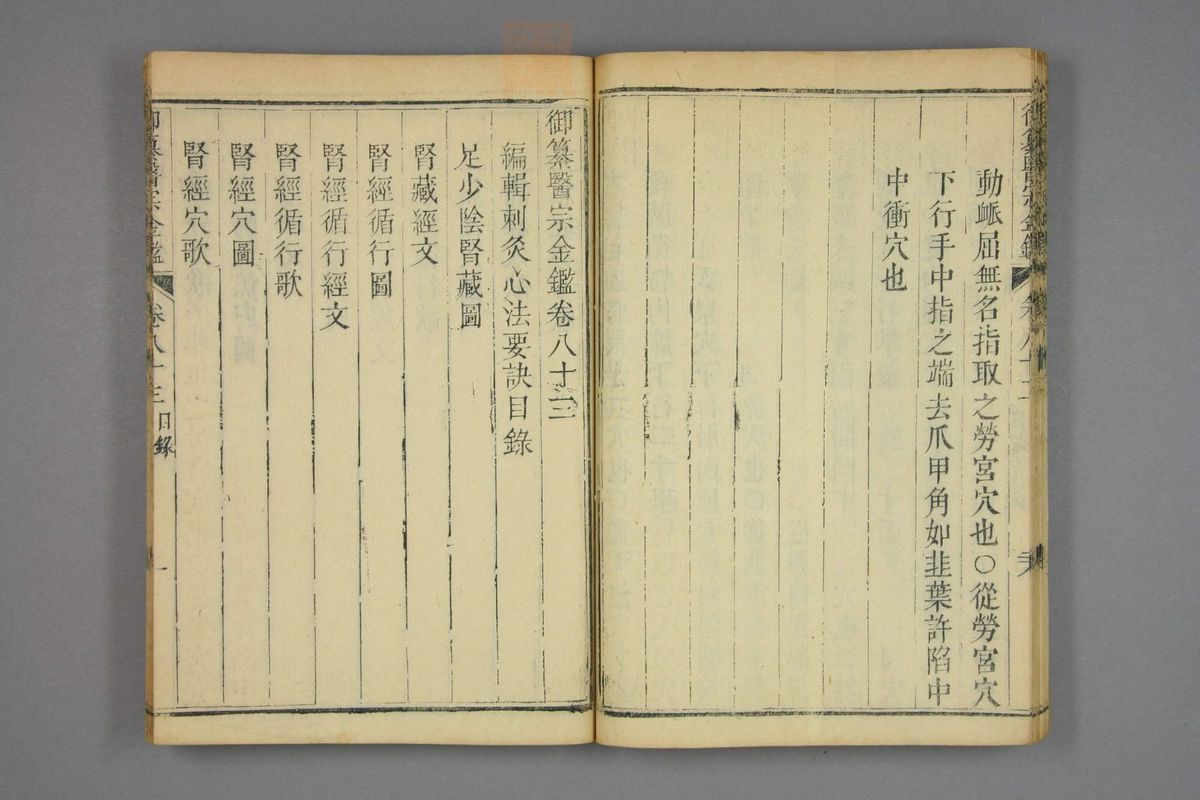 動𧖴屈無名指取之勞宮穴也〇從勞宮穴
下行手中指之端去爪甲角如韭葉許陷中
中衝穴也
御纂醫宗金鑑卷八十三
編輯刺灸心法要訣目錄
足少陰腎藏圖
腎藏經文
腎經循行圖
腎經循行經文
腎經循行歌
腎經穴圖
腎經穴歌
御纂醫宗金鑑 卷八十三 目錄 一